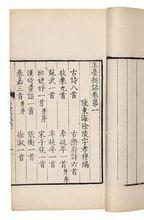 玉臺新詠卷第一
陳東海徐陵字孝穆編
古詩八首 古樂府詩六首
枚乘九首 李延年一首并序
蘇武一首 辛延年一首
班婕妤一首并序 宋子侯一首
漢時童謠一首 張衡一首
秦嘉三首并序 徐淑一首